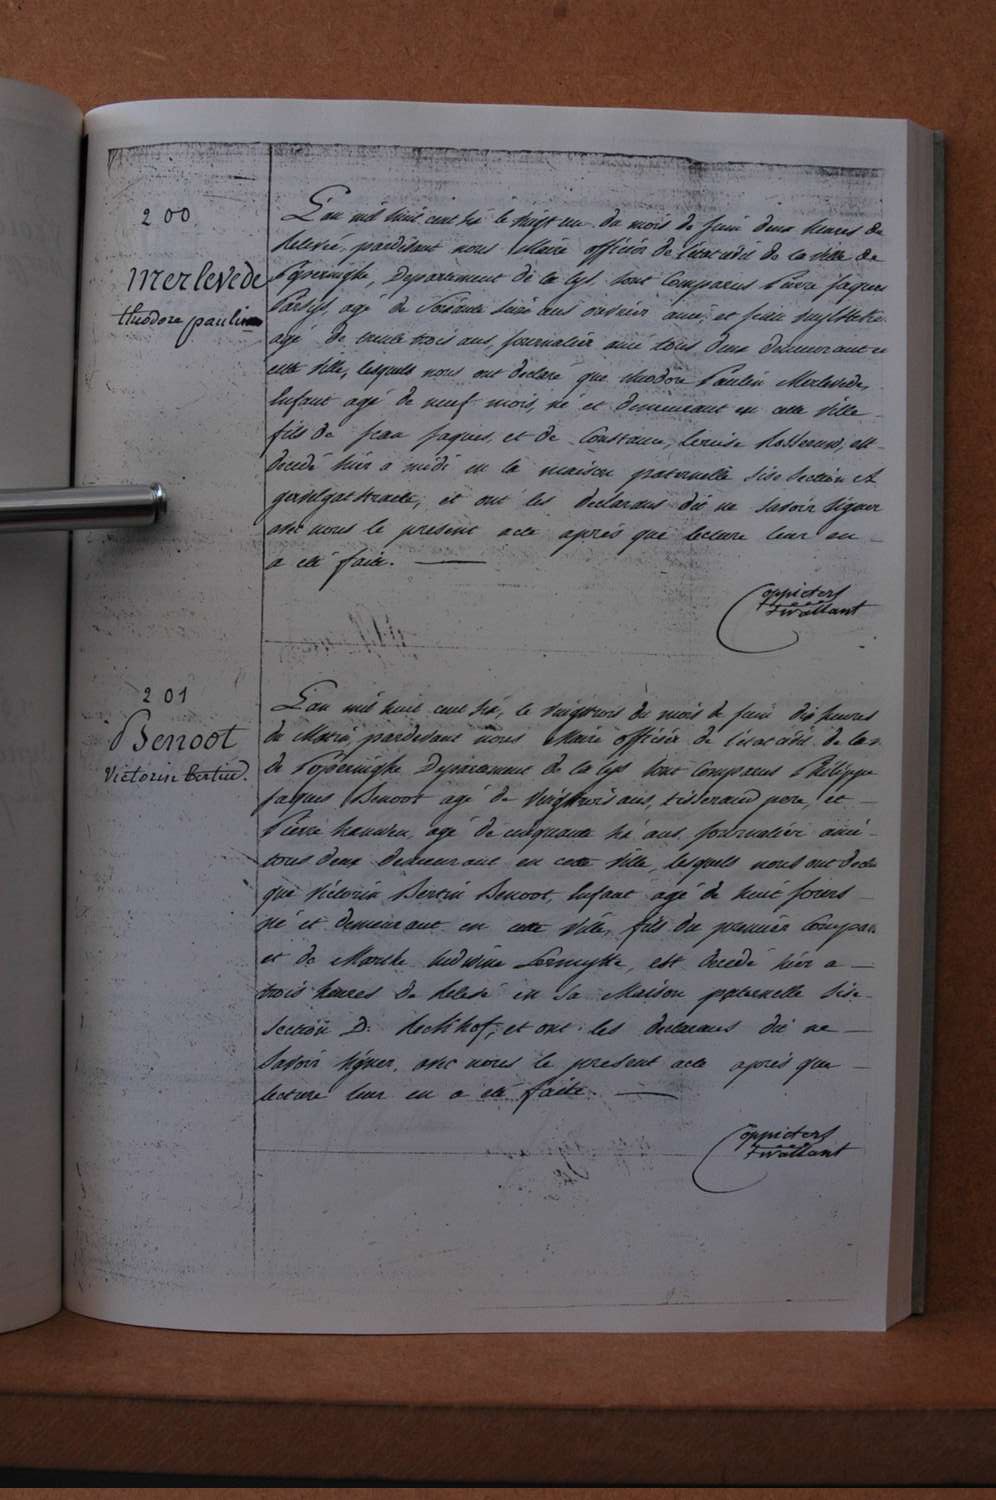 200
Merlevede
theodore paulin
L'an mil huit cent six le vingt un du mois de juin deux heures de
relevée, pardevant nous Maire officier de l'etat civil de la ville de
Poperinghe, Departement de la Lys, sont comparus Pierre jaques
agé de soixante ans ami, et jean
agé de trente trois ans, journalier ami tous deux demeurant en
cette ville, lesquels nous ont declaré que theodore Paulin Merlevede,
Enfant agé de neuf mois, né et demeurant en cette ville
fils de jean jaques, et de Constance, louise est
decedé hier a midi en la maison paternelle sise section A
et ont les declarans dit ne savoir signer
avec nous le present acte après que lecture leur en
a été faite.
Coppieters
t'wallant
201
Benoot
Victorin bertin.
L'an mil huit cent six, le vingttrois du mois de juin dix heures
du Matin, pardevant nous Maire officier de l'état civil de la v.
de Poperinghe Departement de la Lys sont comparus Philippe
jaques Benoot agé de vingttrois ans, tisserand pere, et
Pierre agé de cinquante six ans journalier ami
tous deux demeurant en cette ville, lesquels nous ont decla
que victorin Bertin Benoot, Enfant agé de huit jours
né et demeurant en cette ville, fils du premier Compar
et de Marthe est decedé hier a
trois heures de relevé en sa Maison paternelle sise
Section D. et ont les declarans dit ne
savoir signer, avec nous le present acte après que
lecture leur en a été faite.
Coppieters
t'wallant